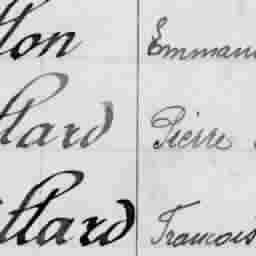 llon Emman
llard Pierre
illard Francois